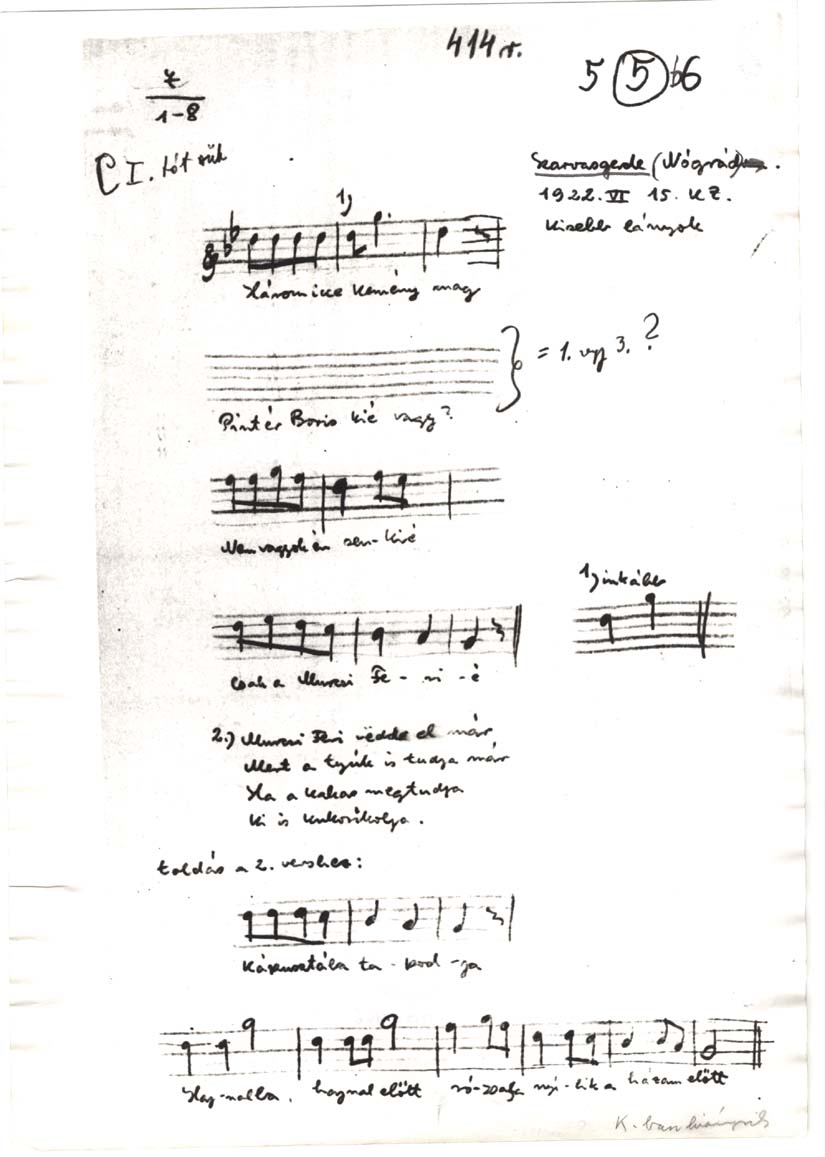 414 r.
5 (5) b6
z
1-8
C I. tót
Szarvasgerde (Nógrád).
1922. VI 15. K Z.
Kisebb lányok
1)
Háromicce kemény mag
= 1. vgy 3. ?
Pintér Boris kié vagy?
Nem vagyok én sen-kié
1) inkább
Csak a Murcsi Fe - ri - é
2.) Murcsi Feri vëdde el már
Mert a tyúk is tudja már
Ha a kakas megtudja
Ki is kukorikolja.
toldás a 2. vershez:
Káposztába ta - pod - ga
Haj-nalba, hajnal előtt ró-zsafa nyí-lik a házam előtt
K-ban hiányzik